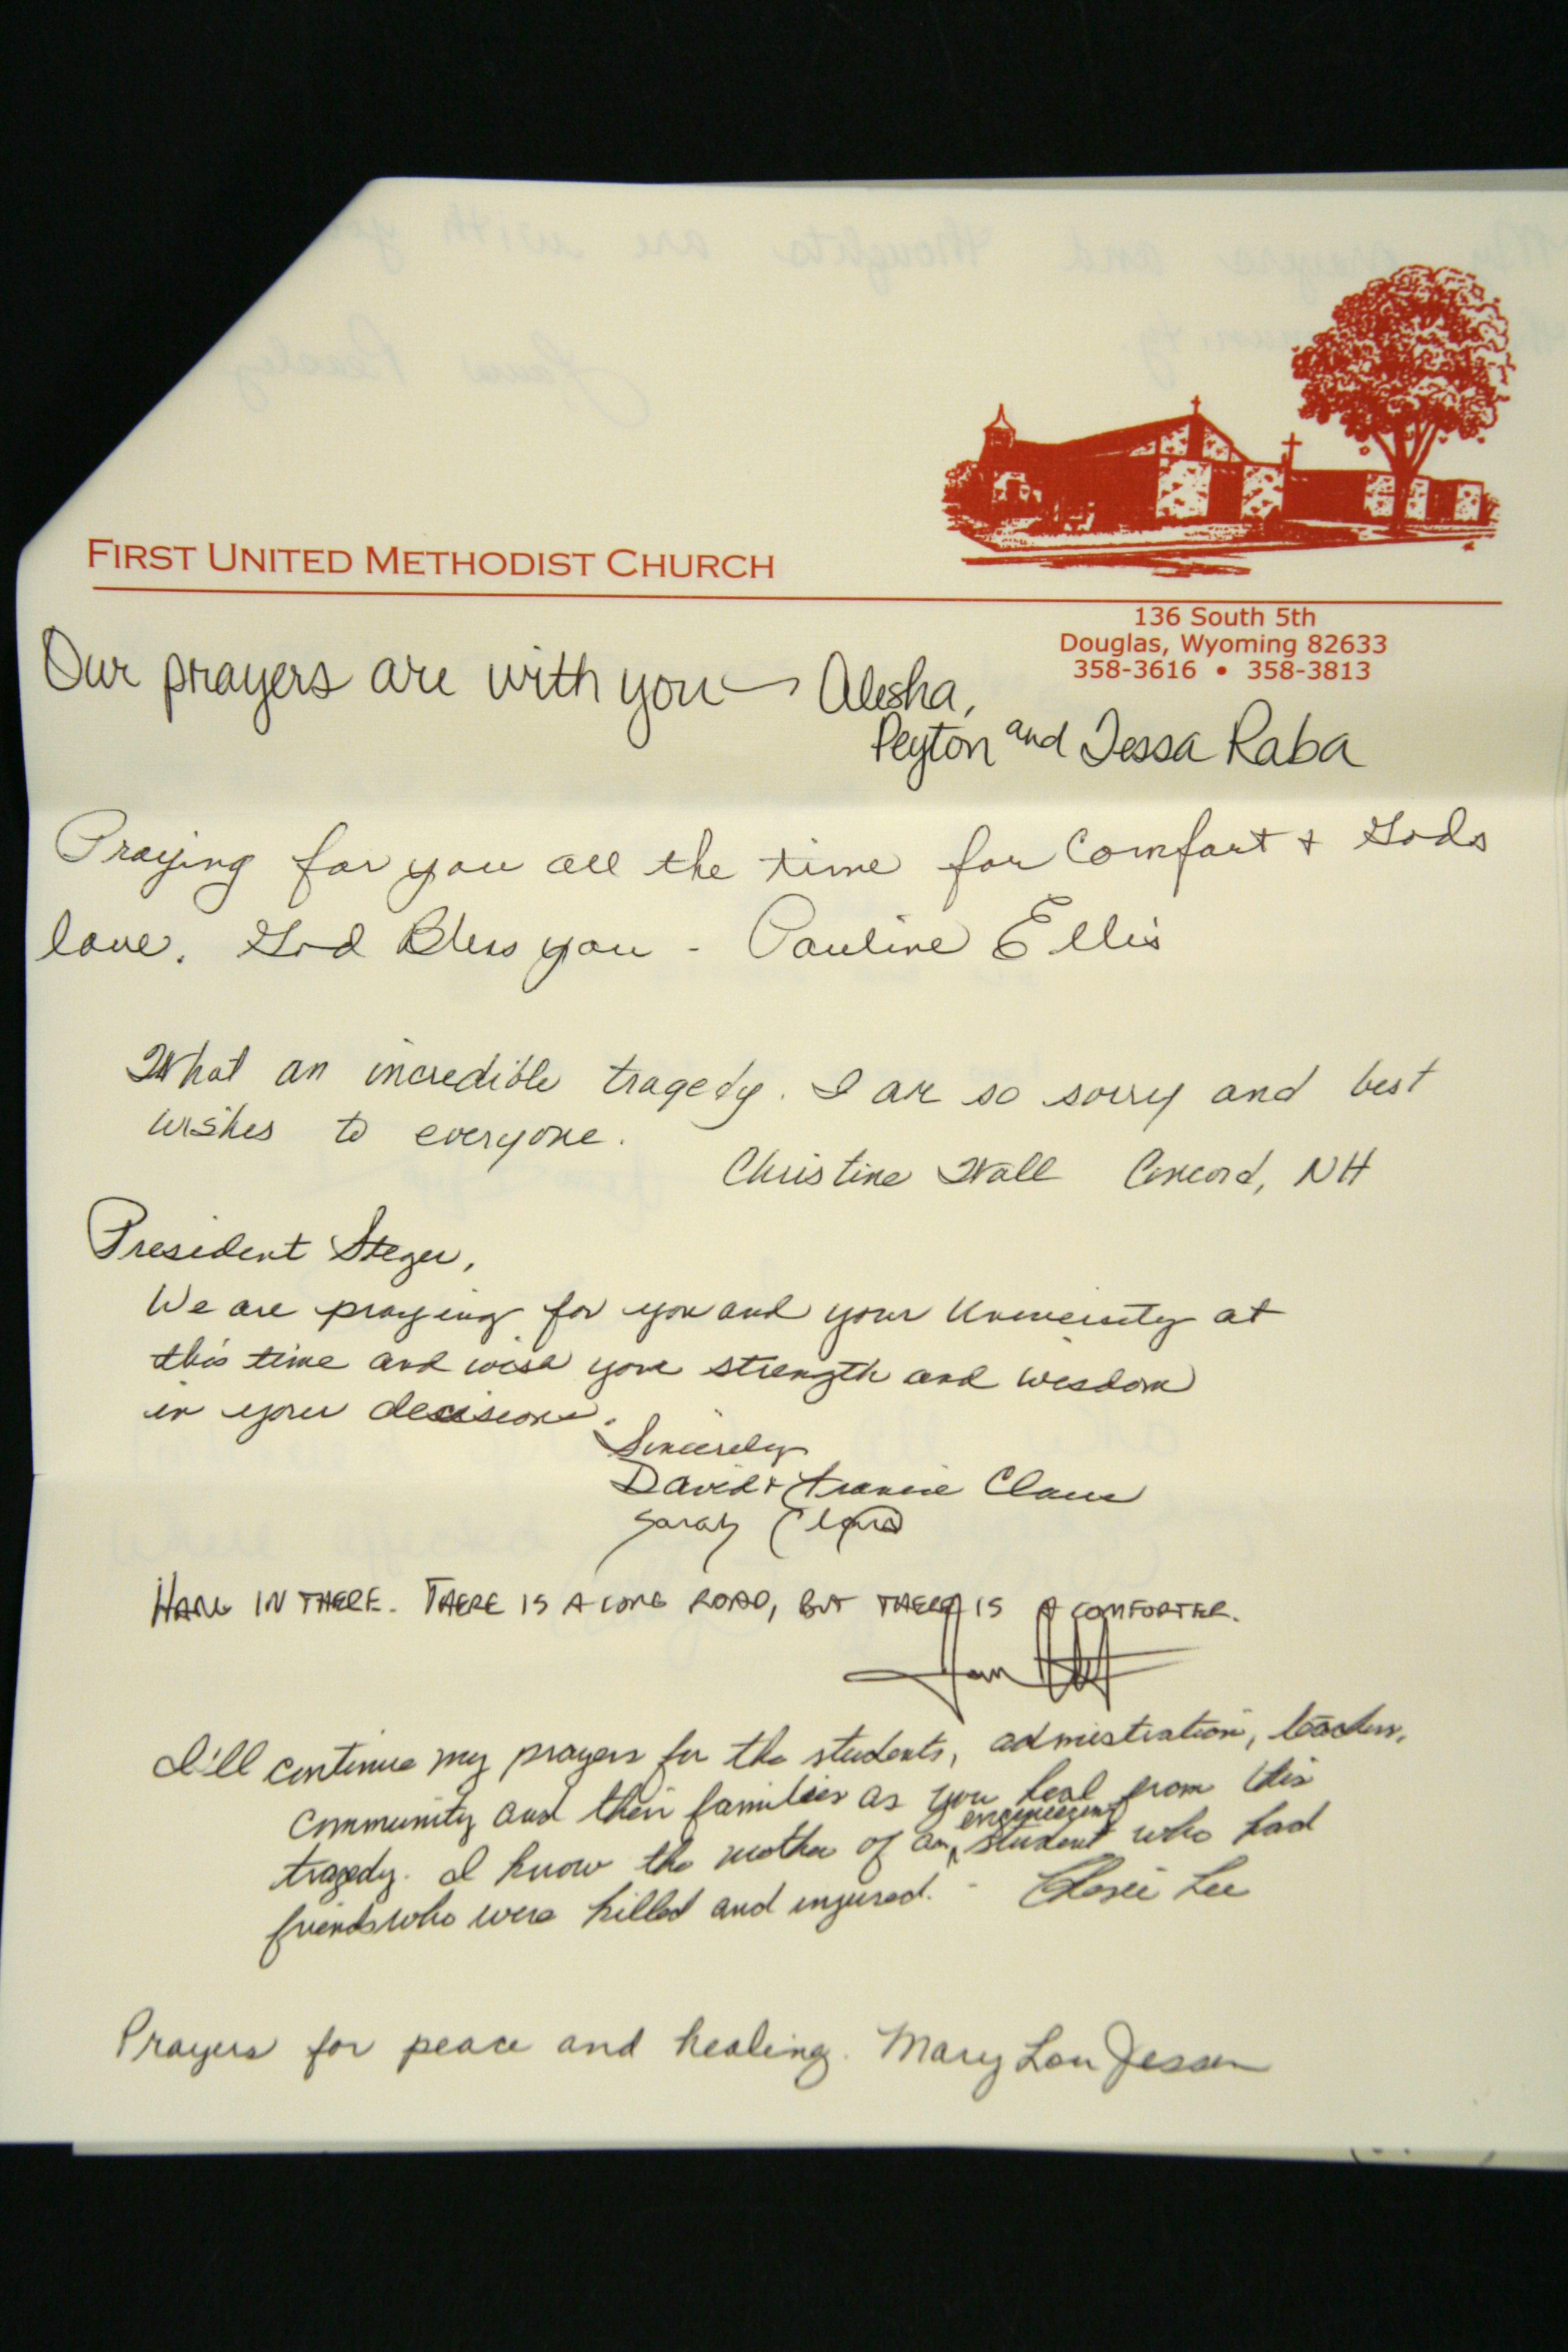 FIRST UNITED METHODIST CHURCH
136 South 5th
Douglas, Wyoming 82633
358-3616 • 358-3813
Our prayers are with you Alesha,
Peyton and Tessa Raba
Praying for you all the time for Comfort + Gods
love. God Bless you - Pauline Ellis
What an incredible tragedy. I am so sorry and best
wishes to everyone.
Christine Wall Concord, NH
President Steger,
We are praying for you and your University at
this time and wish you strength and wisdom
in your decisions.
Sincerely
David + Francie
Sarah
HANG IN THERE. THERE IS A LONG ROAD, BUT THERE IS A COMFORTER.
I'll continue my prayers for the students, admistration, teachers,
community and their families as you heal from this
tragedy. I know the mother of an engineering student who had
friends who were killed and injured. - Lee
Prayers for peace and healing. Mary Lou Jessen